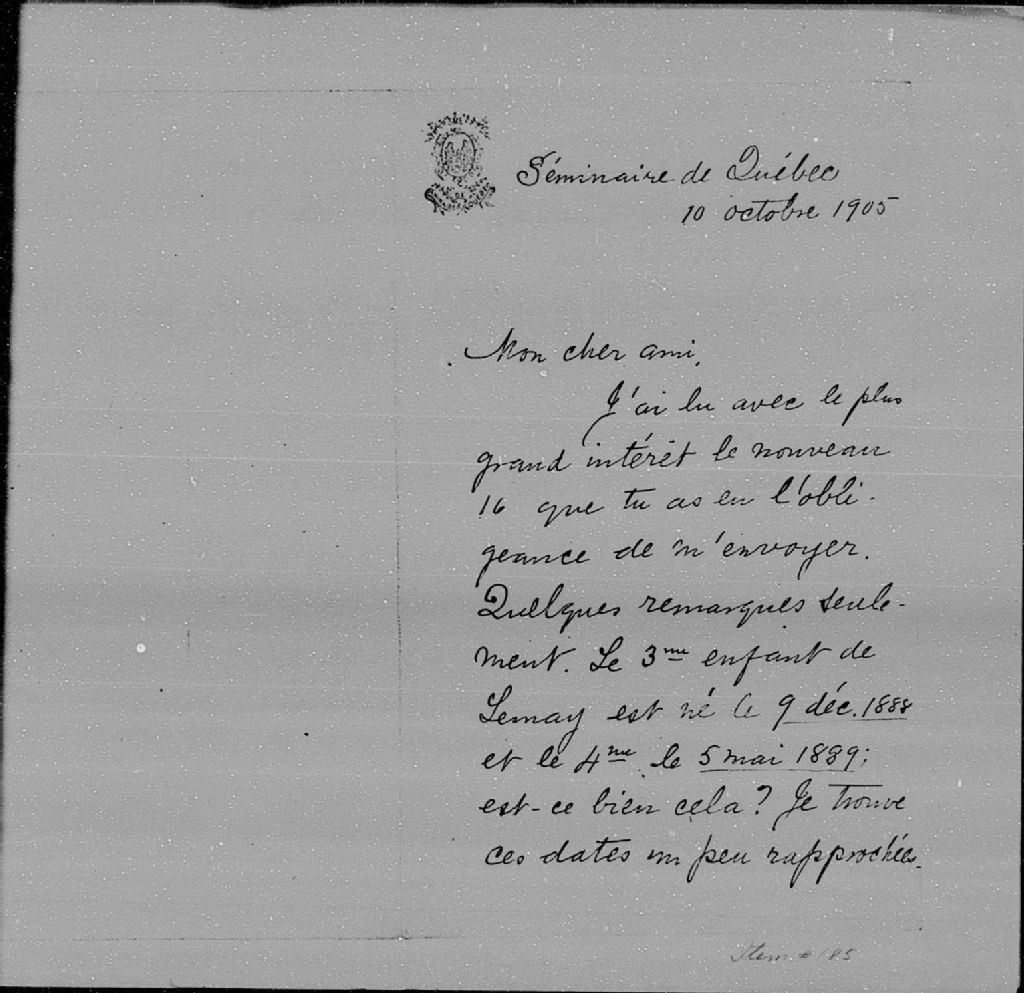 Séminaire de Québec
10 octobre 1905
Mon cher ami,
J'ai lu avec le plus
grand intérêt le nouveau
16 que tu as eu l'obli-
geance de m'envoyer.
Quelques remarques seule-
ment. Le 3me enfant de
Lemay est né le 9 déc. 1888
et le 4me le 5 mai 1889:
est-ce bien cela? Je trouve
ces dates un peu rapprochées.
Item # 185